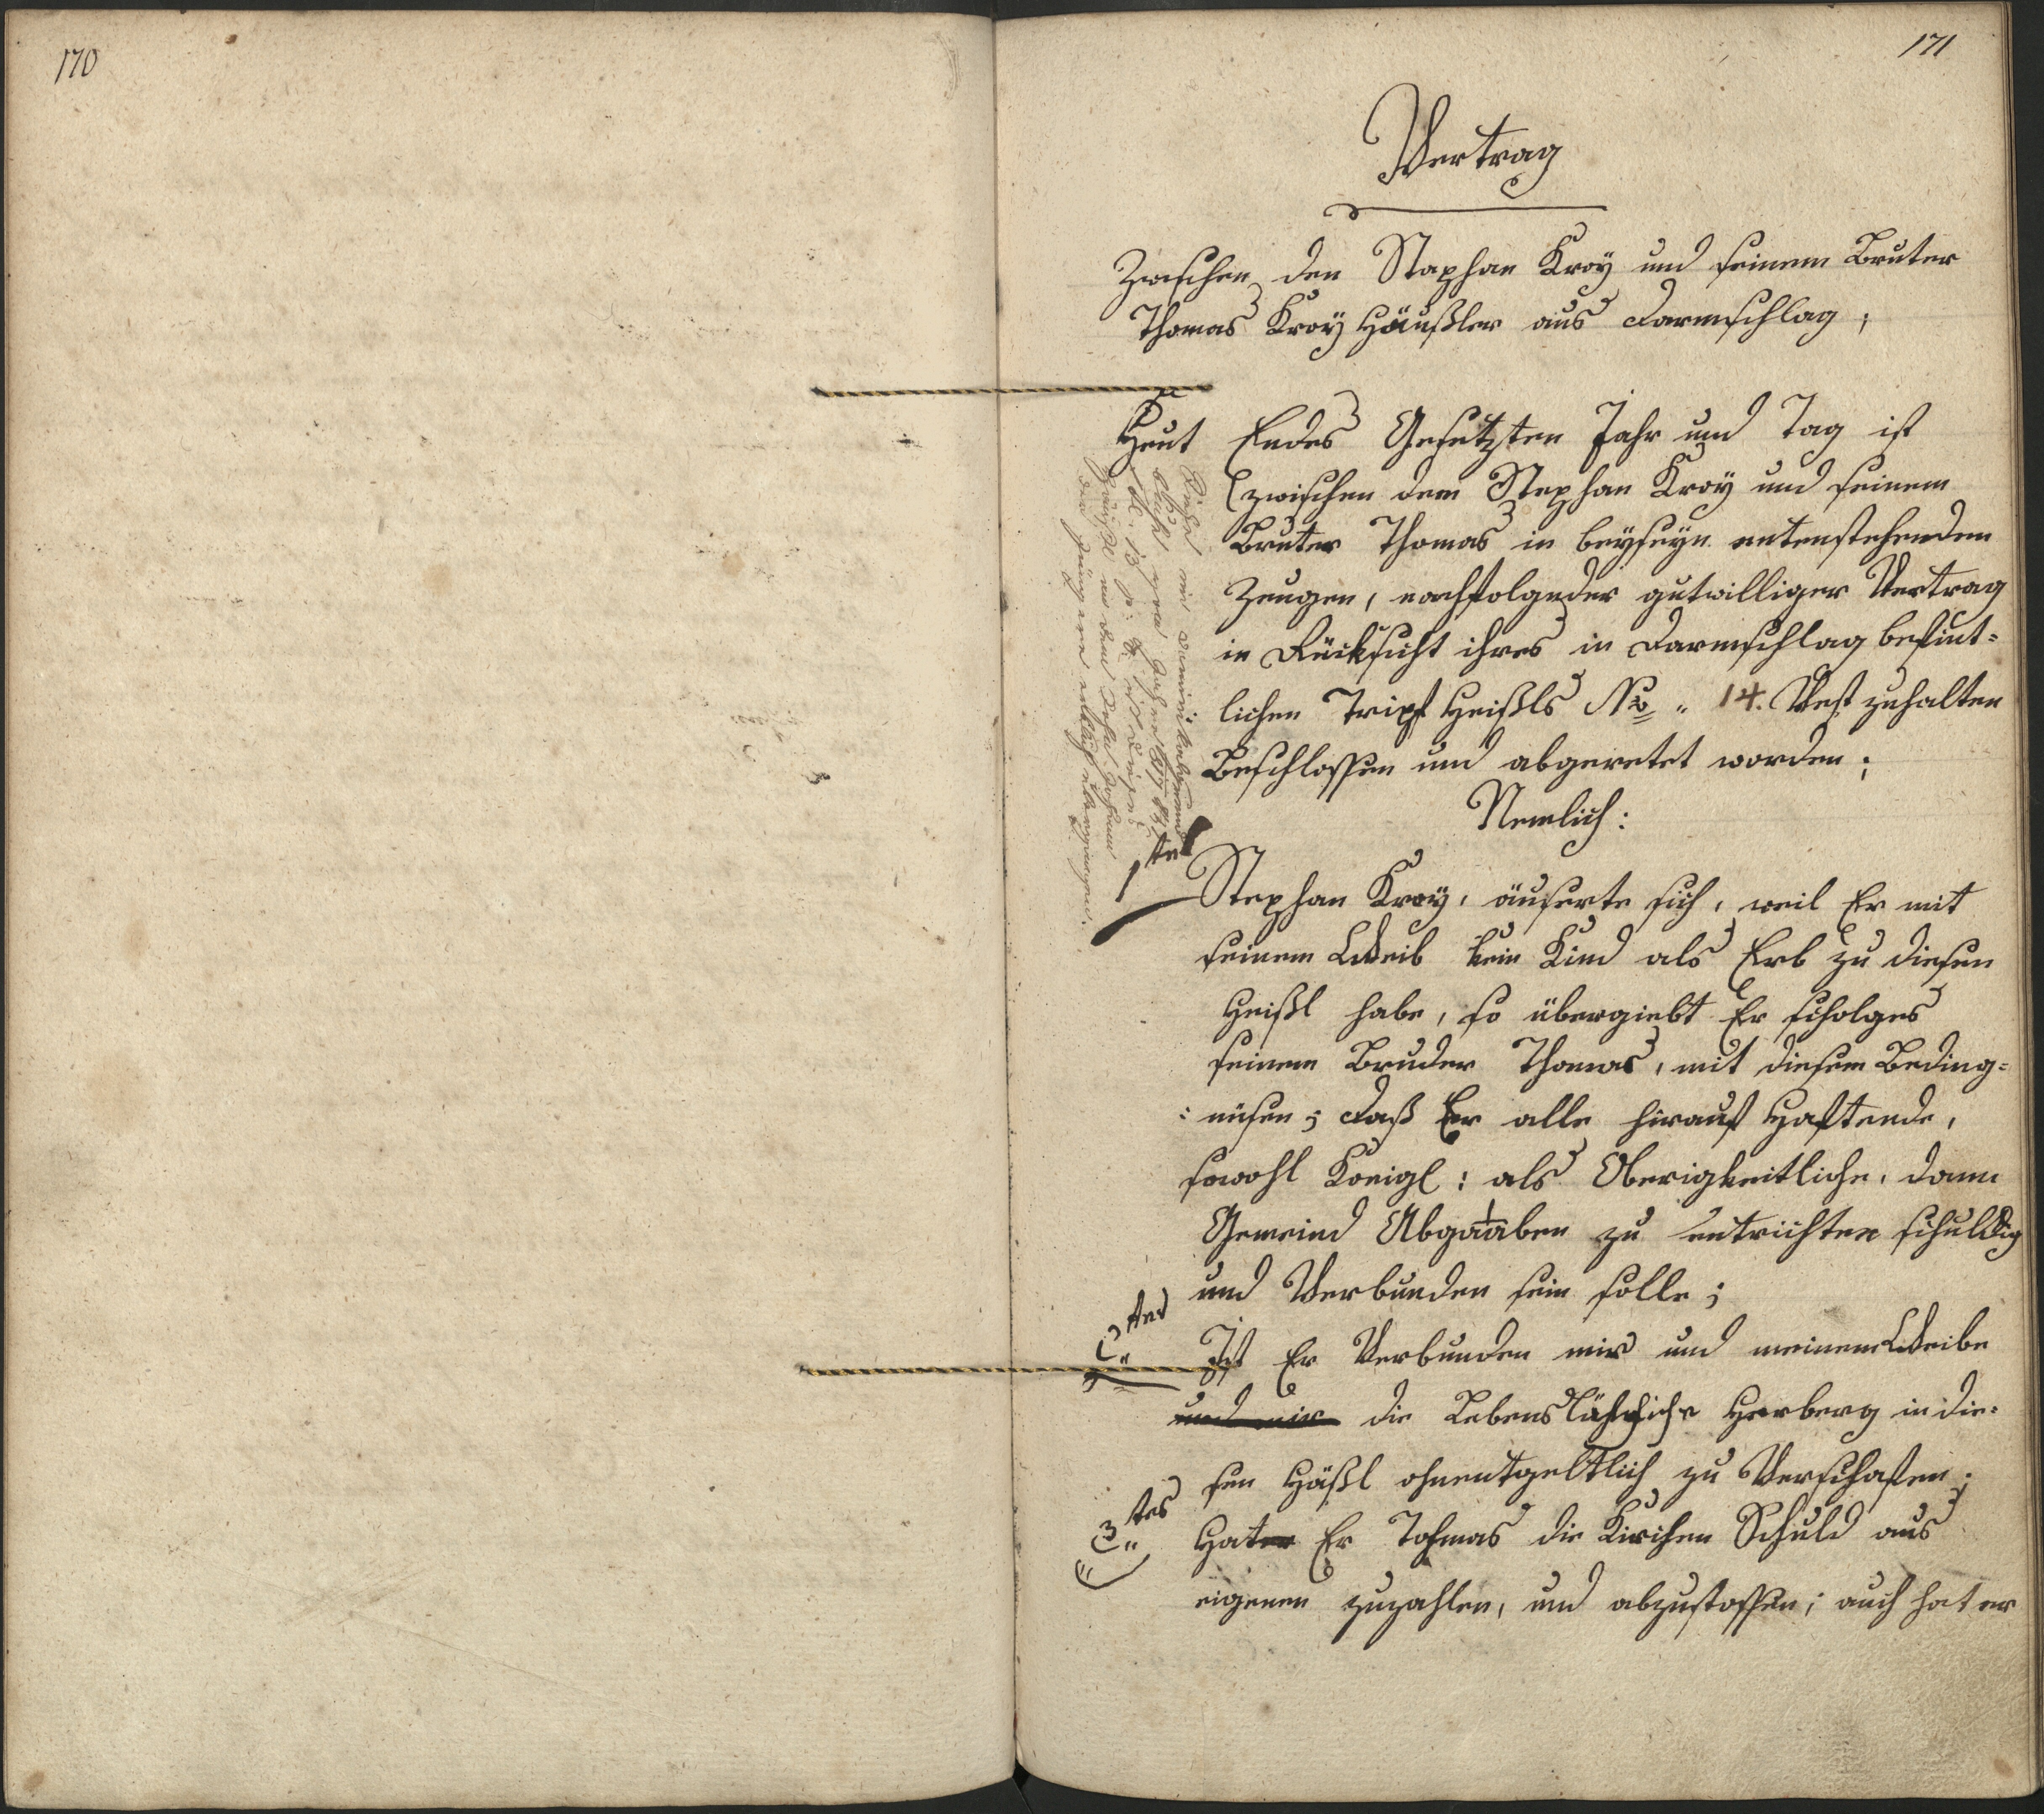 170
171
Vertrag
Zwischen den Staphan Kroÿ und seinem Bruter
Thomas Kroÿ Häußler aus Darmschlag;
Heut Endes Gesetzten Jahr und Tag ist
zwischen dem Stephan Kroÿ und seinem
Bruter Thomas in beÿseÿn untenstehenden
Zeugen, nachfolgnder gutwilliger Vertrag
in Rücksicht ihres in Darmschlag befint-
lichen Tripf Heißls No. 14. Vest zuhalten
Beschlossen und abgeretet worden;
Nemlich:
1tens Stephan Kroÿ, äuserte sich, weil Er mit
seinem Weib kein Kind als Erb zu diesen
Heißl habe, so übergiebt Er scholges
seinem Bruder Thomas, mit diesem Beding-
:nüsen; daß Er alle hirauf Haftende,
sowohl Königl: als Oberigkeitliche, dann
Gemeind Abgaaben zu entrichten schuldig
und Verbunden sein solle;
2tens Ist Er Verbunden mir und meinem Weibe
und mir die Lebenslähnliche Herberg in die-
sen Häßl ohnentgeltlich zu Verschafen;
3tes Hater Er Tohmas die Kirchen Schuld aus
eigenen zuzahlen, und abzustossen; auch hat er